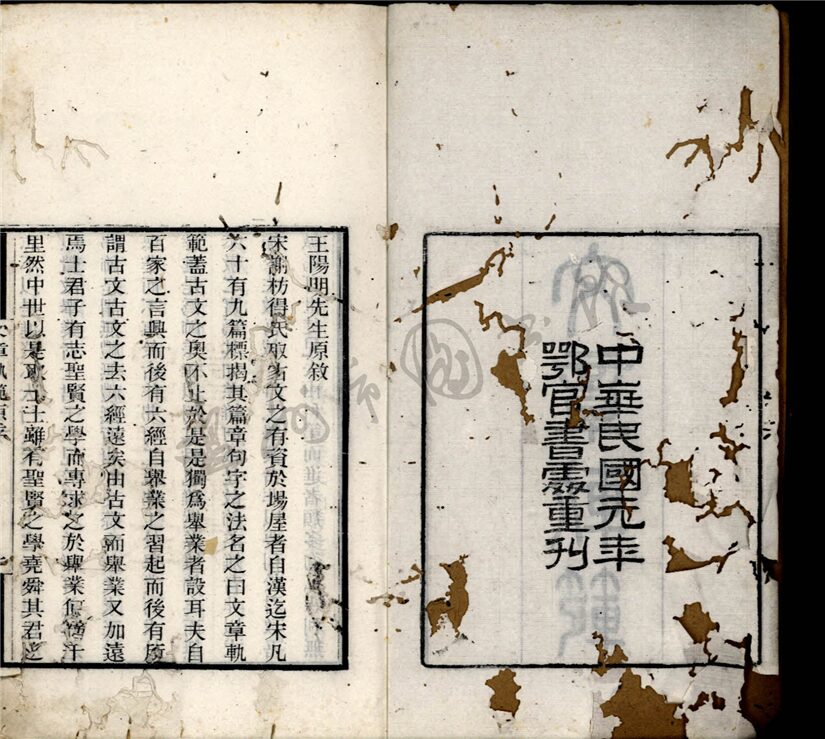 中華民國元年
鄂官書處重刊
王陽明先生原敘
宋謝枋得氏取古文之有資於場屋者自漢迄宋凡
六十有九篇標揭其篇章句字之法名之曰文章軌
範蓋古文之奧不止於是是獨爲舉業者設耳夫自
百家之言興而後有六經自舉業之習起而後有所
謂古文古文之去六經遠矣由古文而舉業又加遠
焉士君子有志聖賢之學而專求之於舉業何啻千
里然中世以是取士士雖有聖賢之學堯舜其君之